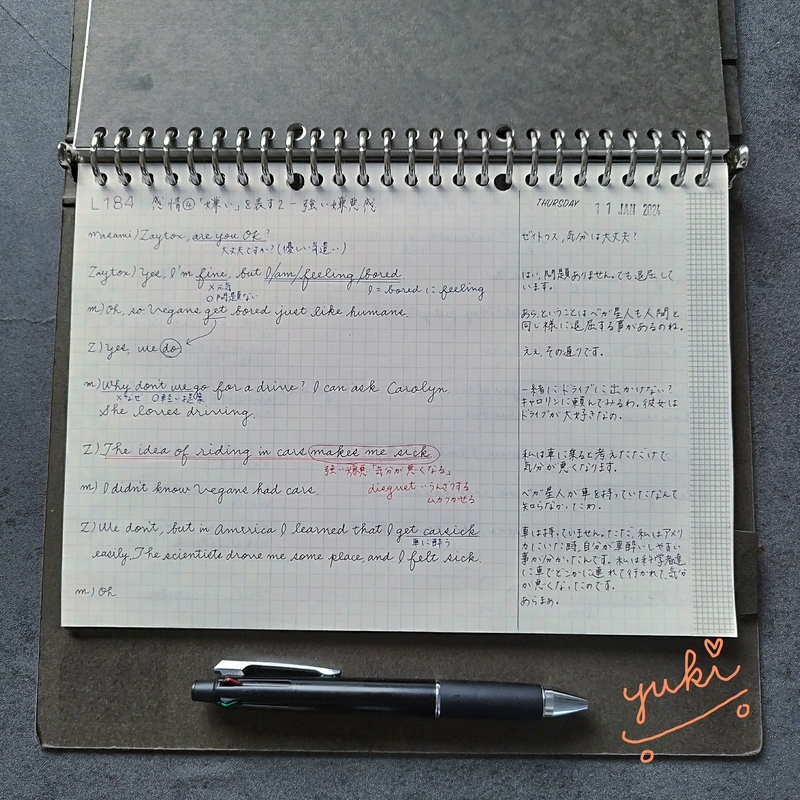 L184 感情④「嫌い」を表す2 - 強い嫌悪感
THURSDAY 11 JAN 2024
Masami) Zaytox, are you OK?
大丈夫ですか?(優しい気遣い)
ゼイトクス,気分は大丈夫?
Zaytox) Yes, I'm fine, but I/am/feeling/bored
×元気
○問題ない
I = bored に feeling
はい,問題ありません。でも退屈して
います。
m) Oh, so Vegans get bored just like humans.
あら,ということはベガ星人も人間と
同じ様に退屈する事があるのね。
Z) Yes, we do
ええ,その通りです。
m) Why don't we go for a drive? I can ask Carolyn
×なぜ ○軽い提案
She loves driving.
一緒にドライブに出かけない?
キャロリンに頼んでみるわ。彼女は
ドライブが大好きなの。
Z) The idea of riding in cars makes me sick
強い嫌悪「気分が悪くなる」
私は車に乗ると考えただけで
気分が悪くなります。
m) I didn't know Vegans had cars.
disgust…うんざりする
ムカつかせる
ベガ星人が車を持っていたなんて
知らなかったわ。
Z) We don't, but in America I learned that I get carsick
車に酔う
easily. The scientists drove me some place, and I felt sick.
車は持っていません。ただ,私はアメリ
カにいた時,自分が車酔いしやすい
事が分かったんです。私は科学者達
に車でどこかに連れて行かれて,気分
が悪くなったのです。
m) Oh
あらまぁ。
yuki